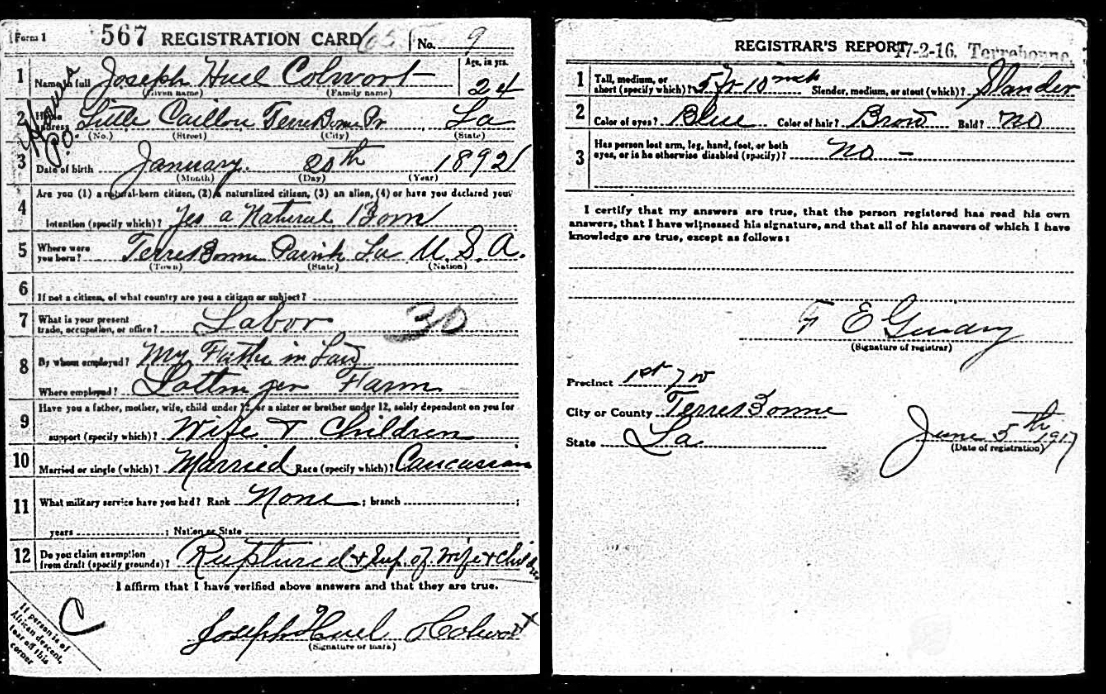 Form 1 567 REGISTRATION CARD No. 9
1 Name in full Joseph Huel Colwort Age, in yrs. 24
(Given name) (Family name)
Houma PO
2 Home address Little Caillou TerreBonne Pr La
(No.) (Street) (City) (State)
3 Date of birth January 20th 1892
(Month) (Day) (Year)
4 Are you (1) a natural-born citizen, (2) a naturalized citizen, (3) an alien, (4) or have you declared your
intention (specify which)? Yes a Natural Born
5 Where were you born? TerreBonne Parish La U.S.A.
(Town) (State) (Nation)
6 If not a citizen, of what country are you a citizen or subject?
7 What is your present trade, occupation, or office? Labor 30
8 By whom employed? My Father in Law
Where employed? Farm
9 Have you a father, mother, wife, child under 12, or a sister or brother under 12, solely dependent on you for
support (specify which)? Wife & Children
10 Married or single (which)? Married Race (specify which)? Caucasian
11 What military service have you had? Rank None ; branch ;
years ; Nation or State
12 Do you claim exemption from draft (specify grounds)? Ruptured & Sup. of Wife & Children
I affirm that I have verified above answers and that they are true.
Joseph Huel Colwort
(Signature or mark)
C
If person is of
African descent,
tear off this
corner
REGISTRAR'S REPORT 17-2-16. Terrebonne.
1 Tall, medium, or short (specify which)? 5 ft 10 inch Slender, medium, or stout (which)? Slander
2 Color of eyes? Blue Color of hair? Brow Bald? No
3 Has person lost arm, leg, hand, foot, or both
eyes, or is he otherwise disabled (specify)? No -
I certify that my answers are true, that the person registered has read his own
answers, that I have witnessed his signature, and that all of his answers of which I have
knowledge are true, except as follows:
F E Guidry
(Signature of registrar)
Precinct 1st
City or County TerreBonne
State La.
June 5th 1917
(Date of registration)